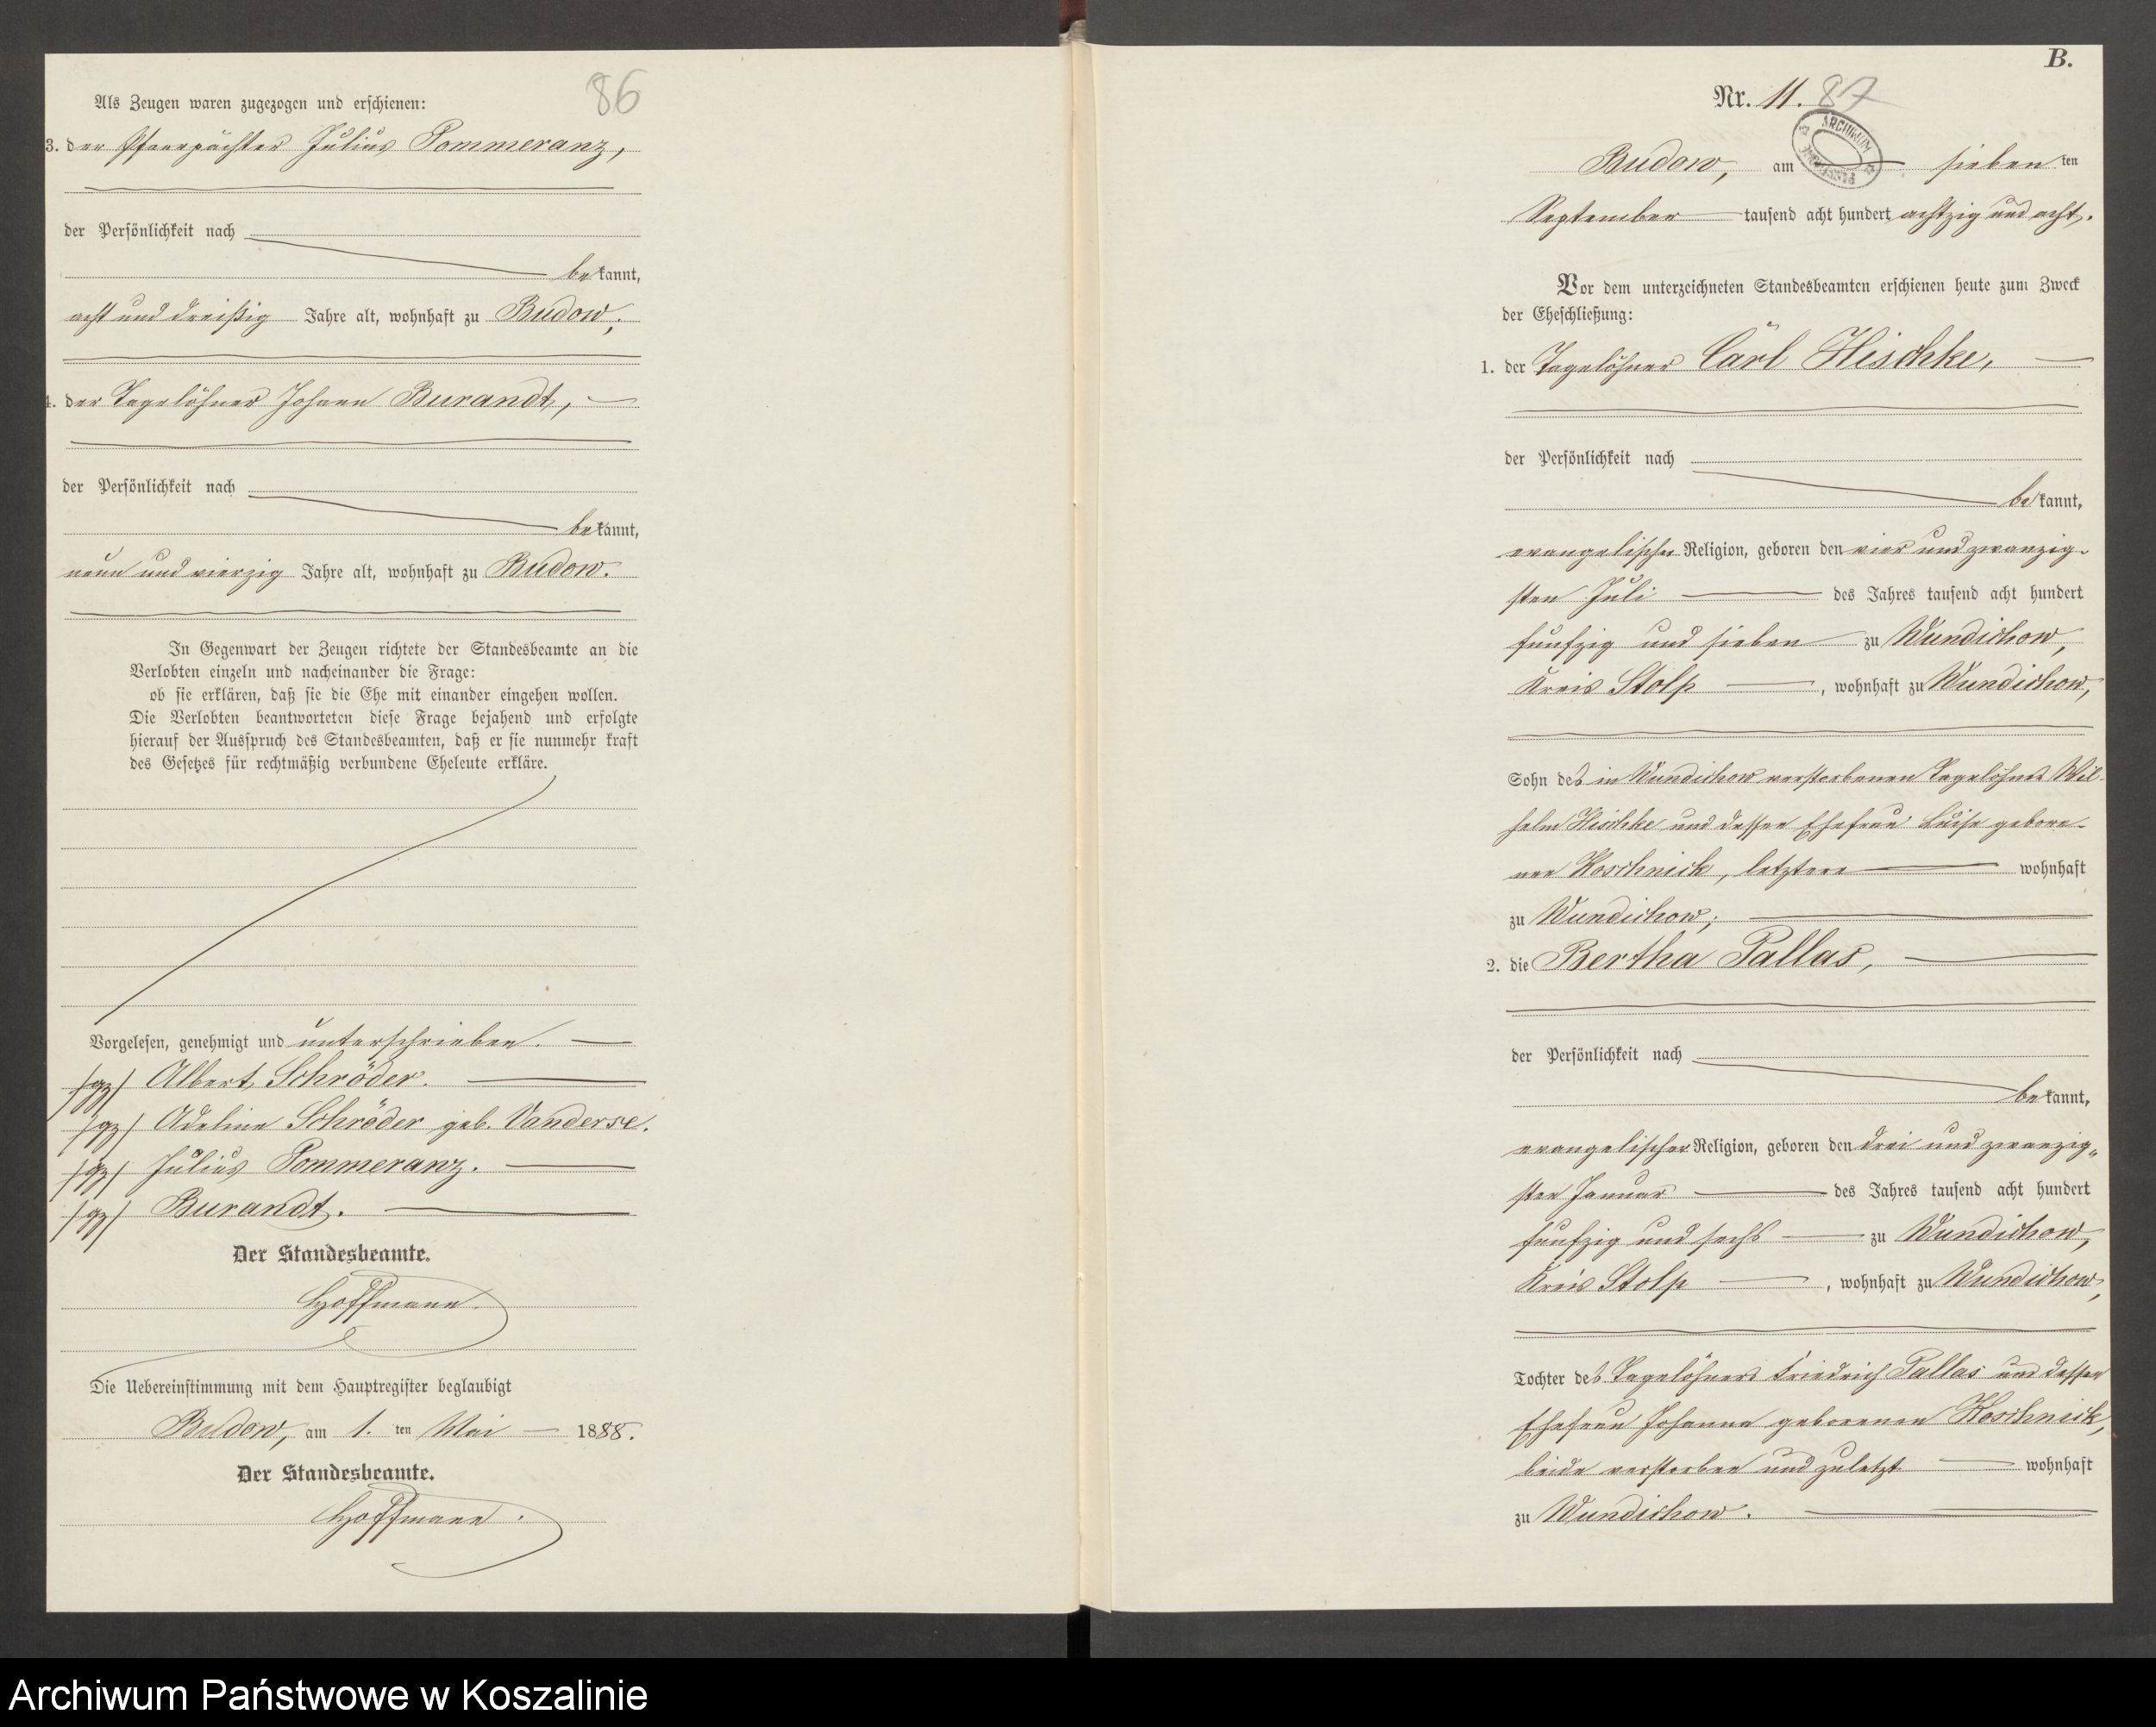 86
Als Zeugen waren zugezogen und erschienen:
3. der Pfarrpächter Julius Pommeranz,
der Persönlichkeit nach
bekannt,
acht und dreißig Jahre alt, wohnhaft zu Budow;
4. der Tagelöhner Johann Burandt,
der Persönlichkeit nach
bekannt,
neun und vierzig Jahre alt, wohnhaft zu Budow.
In Gegenwart der Zeugen richtete der Standesbeamte an die
Verlobten einzeln und nacheinander die Frage:
ob sie erklären, daß sie die Ehe mit einander eingehen wollen.
Die Verlobten beantworteten diese Frage bejahend und erfolgte
hierauf der Ausspruch des Standesbeamten, daß er sie nunmehr kraft
des Gesetzes für rechtmäßig verbundene Eheleute erkläre.
Vorgelesen, genehmigt und unterschrieben.
/gz/ Albert Schröder.
/gz/ Adeline Schröder geb. Vanderse.
/gz/ Julius Pommeranz.
/gz/ Burandt.
Der Standesbeamte.
Hoffmann.
Die Uebereinstimmung mit dem Hauptregister beglaubigt
Budow, am 1. ten Mai 1888.
Der Standesbeamte.
Hoffmann.
B.
Nr. 11. 87
ARCHIWUM
Budow, am sieben ten
September tausend acht hundert achtzig und acht.
Vor dem unterzeichneten Standesbeamten erschienen heute zum Zweck
der Eheschließung:
1. der Tagelöhner Carl Hischke,
der Persönlichkeit nach
bekannt,
evangelischer Religion, geboren den vier und zwanzig-
sten Juli des Jahres tausend acht hundert
fünfzig und sieben zu Wundichow,
Kreis Stolp, wohnhaft zu Wundichow,
Sohn des in Wundichow verstorbenen Tagelöhners Wil-
helm Hischke und dessen Ehefrau Luise gebore-
nen Koschnick, letztere wohnhaft
zu Wundichow;
2. die Bertha Pallas,
der Persönlichkeit nach
bekannt,
evangelischer Religion, geboren den drei und zwanzig-
sten Januar des Jahres tausend acht hundert
fünfzig und sechs zu Wundichow,
Kreis Stolp, wohnhaft zu Wundichow,
Tochter des Tagelöhners Friedrich Pallas und dessen
Ehefrau Johanna geborenen Koschnick,
beide verstorben und zuletzt wohnhaft
zu Wundichow.
Archiwum Państwowe w Koszalinie